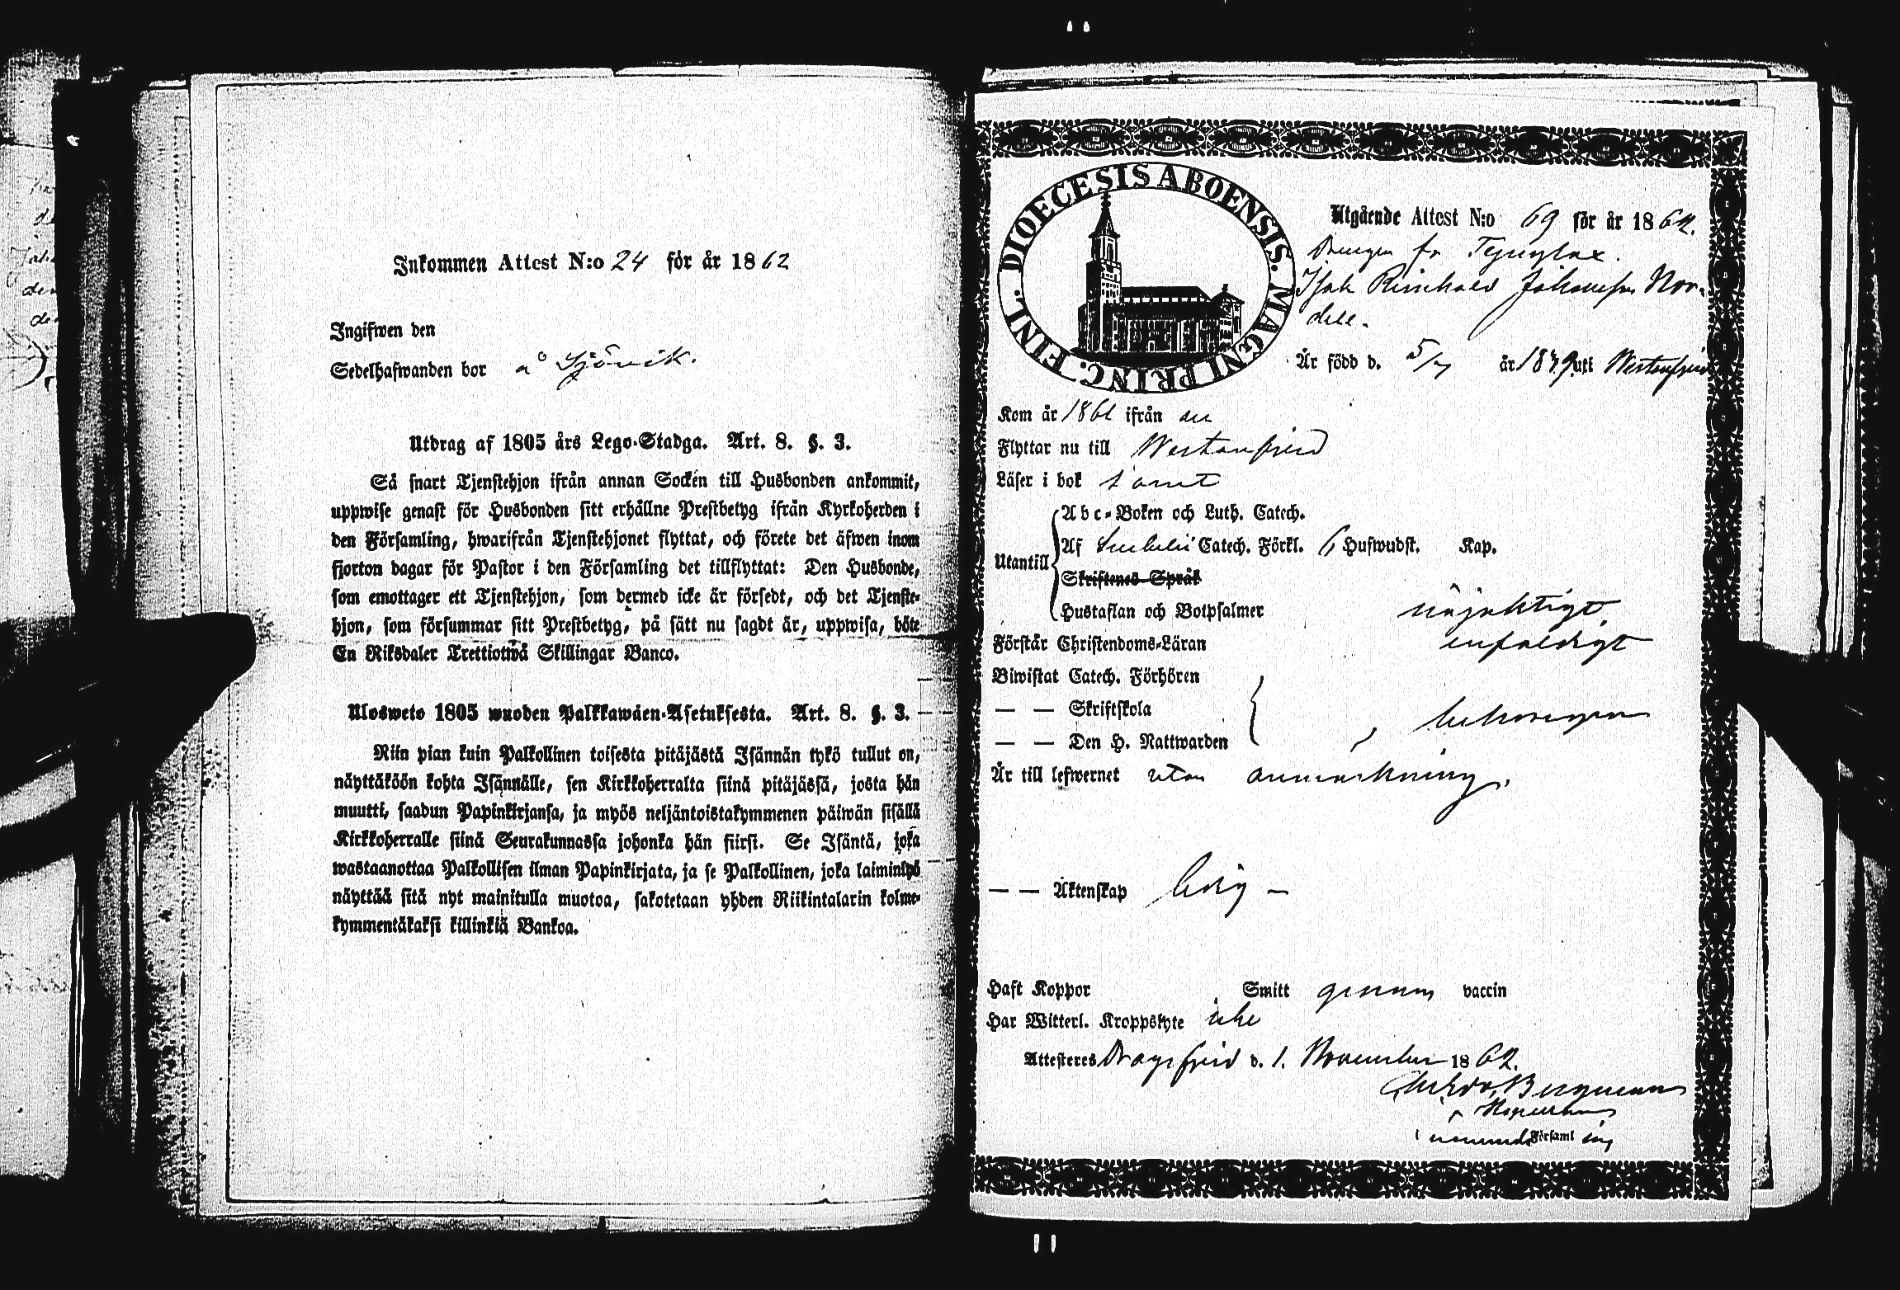 Inkommen Attest N:o 24 för år 1862
Ingifwen den
Sedelhafwanden bor å Sjövik.
Utdrag af 1805 års Lego-Stadga. Art. 8. §. 3.
Så snart Tjenstehjon ifrån annan Socken till Husbonden ankommit,
uppwise genast för Husbonden sitt erhållne Prestbetyg ifrån Kyrkoherden i
den Församling, hwarifrån Tjenstehjonet flyttat, och förete det äfwen inom
fjorton dagar för Pastor i den Församling det tillflyttat: Den Husbonde,
som emottager ett Tjenstehjon, som dermed icke är försedt, och det Tjenste-
hjon, som försummar sitt Prestbetyg, på sätt nu sagdt är, uppwisa, böte
En Riksdaler Trettiotwå Skillingar Banco.
Ulosweto 1805 wuoden Palkkawäen-Asetuksesta. Art. 8. §. 3.
Niin pian kuin Palkollinen toisesta pitäjästä Isännän tykö tullut on,
näyttäköön kohta Isännälle, sen Kirkkoherralta siinä pitäjässä, josta hän
muutti, saadun Papinkirjansa, ja myös neljäntoistakymmenen päiwän sisällä
Kirkkoherralle siinä Seurakunnassa johonka hän siirsi. Se Isäntä, joka
wastaanottaa Palkollisen ilman Papinkirjata, ja se Palkollinen, joka laiminlyö
näyttää sitä nyt mainitulla muotoa, sakotetaan yhden Riikintalarin kolme-
kymmentäkaksi killinkiä Bankoa.
DIOECESIS ABOENSIS. MAGNI PRINC. FINL.
Utgående Attest N:o 69 för år 1862.
Drengen fr
Isak Reinhold Johansson Nor-
dell.
Är född d. 5/7 år 1839 uti Westanfjerd
Kom år 1861 ifrån
Flyttar nu till Westanfjerd
Läser i bok
Utantill
Abc-Boken och Luth. Catech.
Af Svebelii Catech. Förkl. 6 Hufwudst. Kap.
Skriftenes Språk
Hustaflan och Botpsalmer nöjaktigt
Förstår Christendoms-Läran enfaldigt
Biwistat Catech. Förhören
— — Skriftskola
— — Den H. Nattwarden behörigen
Är till lefwernet utan anmärkning.
— — Äktenskap ledig —
Haft Koppor Smitt genom vaccin
Har Witterl. Kroppslyte icke
Attesteres Dragsfjerd d. 1. November 1862.
Bergman
Församl ing